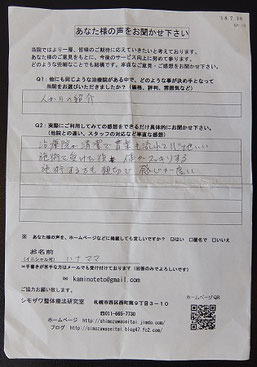 あなた様の声をお聞かせ下さい
当院ではより一層、皆様のご期待に応えていきたいと考えております。
あなた様のご意見をもとに、今後のサービス向上に努めて参ります。
どのような些細なことでも結構です。率直なご意見・ご感想をお聞かせ下さい。
Q1:他にも同じような治療院がある中で、どのような事が決め手となって
当院をお選びいただきましたか?(価格、評判、雰囲気など)
人からの紹介
Q2:実際にご利用してみての感想をできるだけ具体的にお聞かせ下さい。
(他院との違い、スタッフの対応など率直な感想)
治療院が清潔で音楽も流れて心地いい
施術を受けた後 体がスッキリする
施術する方も親切で感じが良い
※ あなた様の声を、ホームページなどに掲載しても宜しいですか? ☑はい □匿名で □いいえ
お名前
(イニシャル可) ハナママ
※手書きが苦手な方はメールでも受付けております(回答のみでよろしいです)
✉ kaminoteto@gmail.com
ご協力お願い致します。
ホームページQR
シモザワ整体療法研究室 札幌市西区西町南9丁目3-10
☎011-665-7730
ホームページ http://shimozawaseitai.jimdo.com/
ブログ http://shimozawaseitai.blog47.fc2.com/